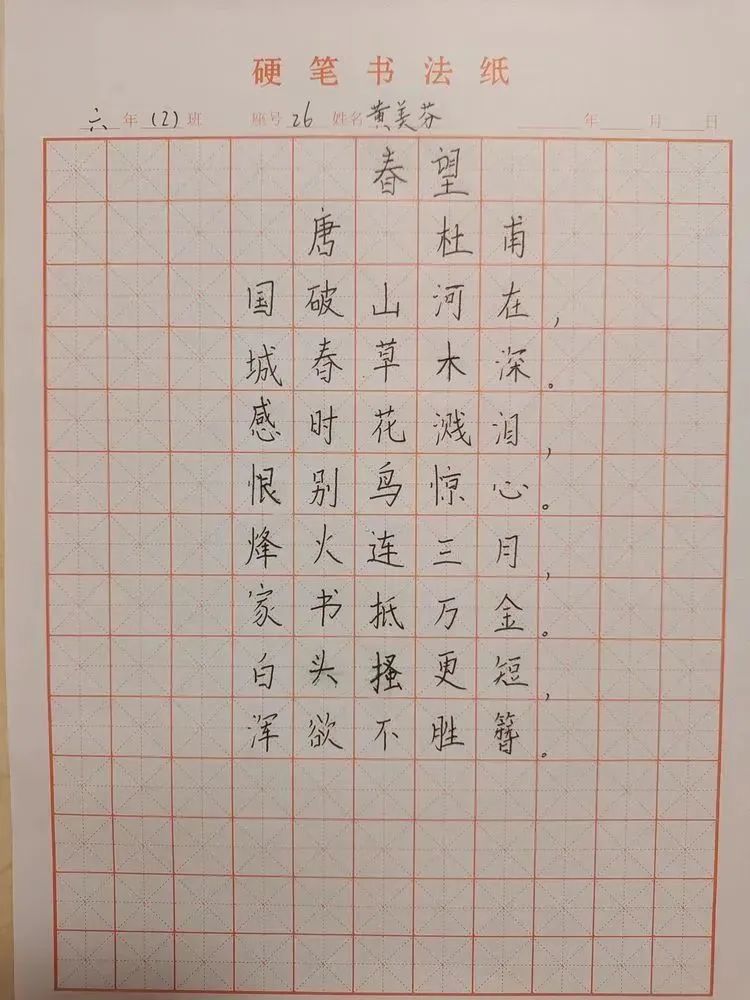 硬笔书法纸
六年(2)班 座号26 姓名黄美芬 年 月 日
春望
唐 杜甫
国破山河在,
城春草木深。
感时花溅泪,
恨别鸟惊心。
烽火连三月,
家书抵万金。
白头搔更短,
浑欲不胜簪。